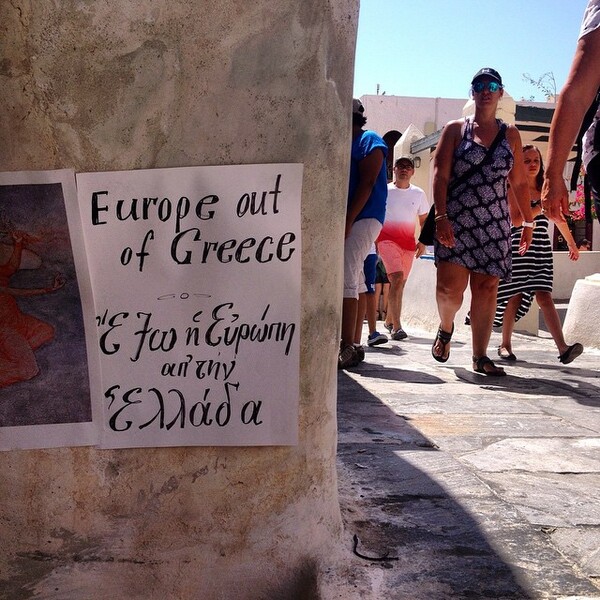 Europe out
of Greece
Ἔξω ἡ Εὐρώπη
ἀπ' τήν
Ἑλλάδα